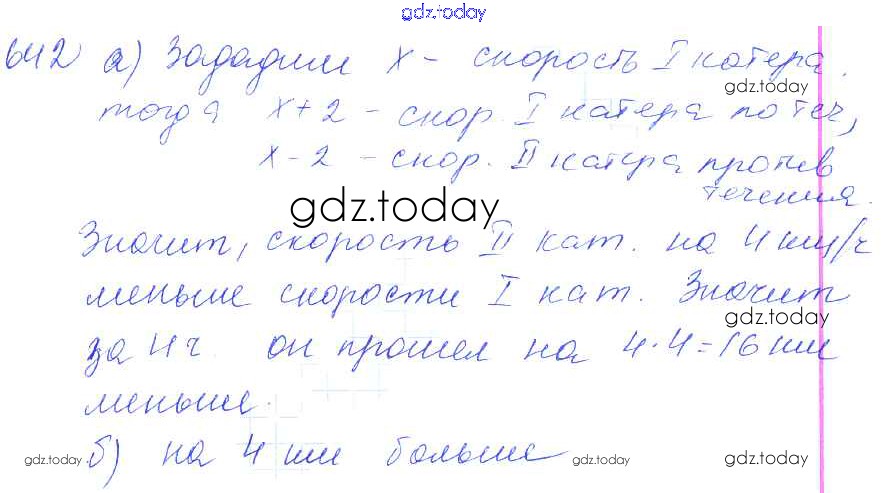 gdz.today
642 а) Зададим x - скорость I катера.
gdz.today
тогда x+2 - скор. I катера по теч,
x-2 - скор. II катера против
течения.
gdz.today
Значит, скорость II кат. на 4 км/ч
меньше скорости I кат. Значит
gdz.today
за 4ч. он прошел на 4·4=16 км
меньше.
б) на 4 км больше
gdz.today gdz.today gdz.today